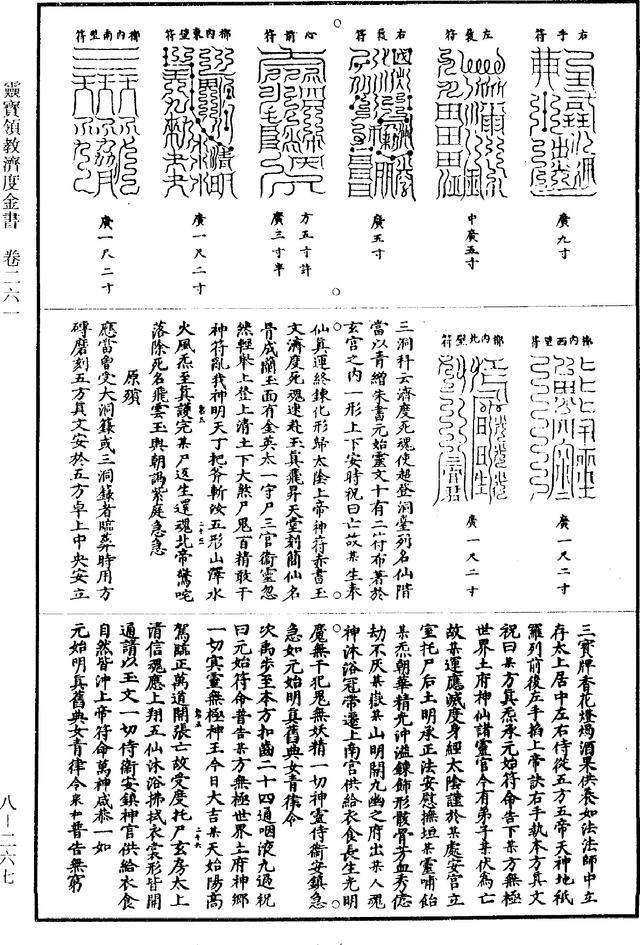 靈寶領教濟度金書　卷二六一
八－二六七
右手符
廣九寸
左長符
中廣五寸
右長符
廣五寸
心前符
方五寸許
廣三寸半
槨內東壁符
廣一尺二寸
槨內南壁符
廣一尺二寸
槨內西壁符
廣一尺二寸
槨內北壁符
廣一尺二寸
三洞科云濟度死魂使超登洞堂列名仙階
當以青繒朱書元始靈文十有二符布著於
玄宮之內一形上下安時祝曰亡故某生奉
仙真運終鍊化形歸太陰上帝神符赤書玉
文濟度死魂速赴玉真飛昇天堂刻簡仙名
骨成蘭玉面有金英太一守尸三官衛靈忽
然輕舉上登上清土下大煞尸鬼百精敢干
神符亂我神明天丁把斧斬汝五形山澤水
火風炁至真護完某尸返生還魂北帝驚咤
落除死名飛雲玉輿朝謁紫庭急急
原殯
應當曾受大洞籙或三洞籙者臨葬時用方
磚磨刻五方真文安於五方卓上中央安立
三寶牌香花燈燭酒果供養如法法師中立
存太上居中左右侍從五方五帝天神地祇
羅列前後左手掐上帝訣右手執本方真文
祝曰某方真炁承元始符命告下某方無極
世界土府神仙諸靈官今有弟子某伏為亡
故某運應滅度身經太陰謹於某處安官立
室托尸后土明承正法安慰撫恤某靈哺飴
某炁朝華精光沖溢鍊飾形骸骨芳血秀億
劫不灰某嶽某山明開九幽之府出某人魂
神沐浴冠帶遷上南宮供給衣食長生光明
魔無干犯鬼無妖精一切神靈侍衛安鎮急
急如元始明真舊典女青律令
次禹步至本方扣齒二十四通咽液九過祝
曰元始符命普告某方無極世界土府神鄉
一切冥靈無極神王今日大吉某天始陽高
駕臨正萬道開張亡故受度托尸玄房太上
清信魂應上翔五仙沐浴拂拭衣裳形皆開
通請以玉文一切侍衛安鎮神宮供給衣食
自然皆沖上帝符命萬神咸恭一如
元始明真舊典女青律令來和普告無窮